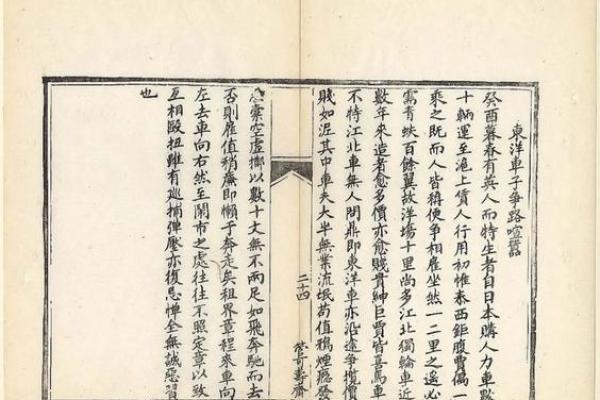 東洋車子爭路喧囂
癸酉暮春有英人而特生者自日本購人力車數
十輛運至滬上賃人行用初惟泰西鉅腹賈偶一
乘之既而人皆稱便爭相雇坐然一二里之遙必
需青蚨百餘翼故洋場十里尚多江北獨輪車近
數年來造者愈多價亦愈賤貴紳巨賈皆喜馬車
不特江北車無人問鼎即東洋車亦沿途爭攬價
賤如泥其中車夫大半無業流氓苟值鴉煙癮發
二十四
空虛擲以數十文無不兩足如飛奔馳而去
否則雇值稍廉即懶于奔走矣租界章程來車向
左去車向右然至鬧市之處往往不照定章以致
互相毆扭雖有巡捕彈壓亦復忌憚全無誠惡習
也